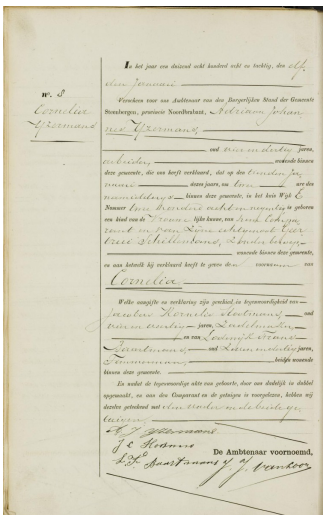 In het jaar een duizend acht honderd acht en tachtig, den elf
den Januari
Verscheen voor ons Ambtenaar van den Burgerlijken Stand der Gemeente
nº. 8
Steenbergen, provincie Noordbrabant, Adriaan Johan
Cornelia
nes IJzermans,
IJzermans
oud vier en dertig jaren,
arbeider, wonende binnen
deze gemeente, die ons heeft verklaard, dat op den tienden Ja
nuari dezes jaars, ten twee ure des
namiddags binnen deze gemeente, in het huis Wijk E
Nummer twee honderd acht en negentig is geboren
een kind van de Vrouwelijke kunne, van hem Compa
rant en van Zijne echtgenoot Geer
trui Schillemans, Zonder beroep
wonende binnen deze gemeente,
en aan hetwelk hij verklaard heeft te geven den voornaam van
Cornelia
Welke aangifte en verklaring zijn geschied, in tegenwoordigheid van
Jacobus Kornelis
jaren,
en van Lodewijk Frans
Baartmans, oud Zeven en dertig jaren,
Timmerman, beiden wonende
binnen deze gemeente.
En nadat de tegenwoordige akte van geboorte, door ons dadelijk in dubbel
opgemaakt, en aan den Comparant en de getuigen is voorgelezen, hebben wij
dezelve geteekend met den vader en de beide ge
tuigen.
A. J. IJzermans
De Ambtenaar voornoemd,
L. F. Baartmans